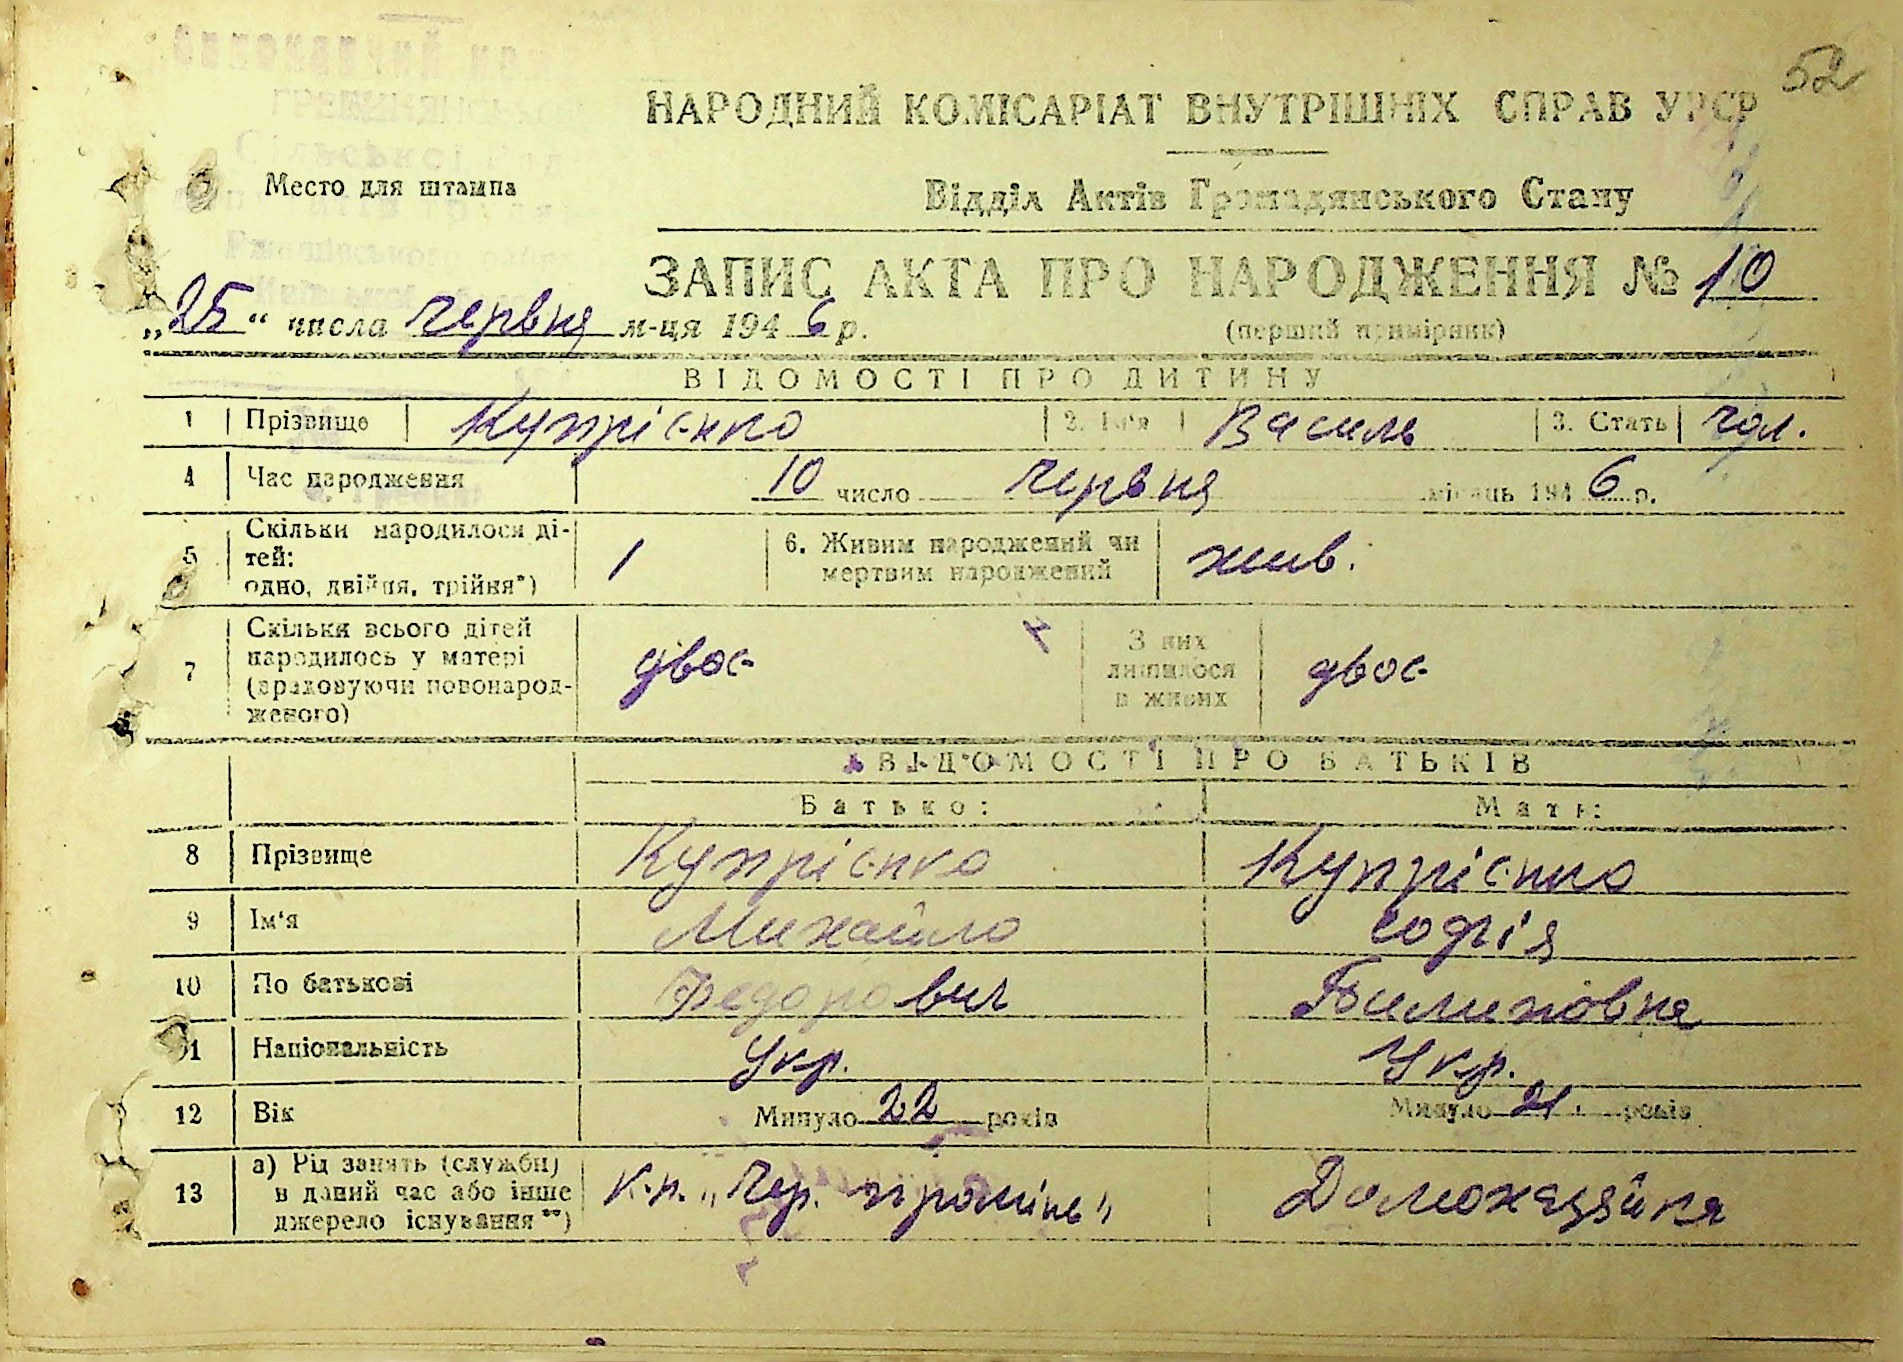 52
НАРОДНИЙ КОМІСАРІАТ ВНУТРІШНІХ СПРАВ УРСР
Место для штампа
Відділ Актів Громадянського Стану
ЗАПИС АКТА ПРО НАРОДЖЕННЯ № 10
„25“ числа червня м-ця 1946 р. (перший примірник)
ВІДОМОСТІ ПРО ДИТИНУ
1 Прізвище Купрієнко 2. Ім'я Василь 3. Стать чол.
4 Час народження 10 число червня місяць 1946 р.
5 Скільки народилося ді-
тей:
одно, двійня, трійня*) 1 6. Живим народжений чи
мертвим народжений жив.
7 Скільки всього дітей
народилось у матері
(враховуючи новонарод-
женого) двоє З них
лишилося
в живих двоє
ВІДОМОСТІ ПРО БАТЬКІВ
Батько: Мати:
8 Прізвище Купрієнко Купрієнко
9 Ім'я Михайло Софія
10 По батькові Федорович Пилиповна
11 Національність Укр. Укр.
12 Вік Минуло 22 років Минуло 21 років
13 а) Рід занять (служби)
в даний час або інше
джерело існування**) к-п. „Чер. промінь" Домохазяйка